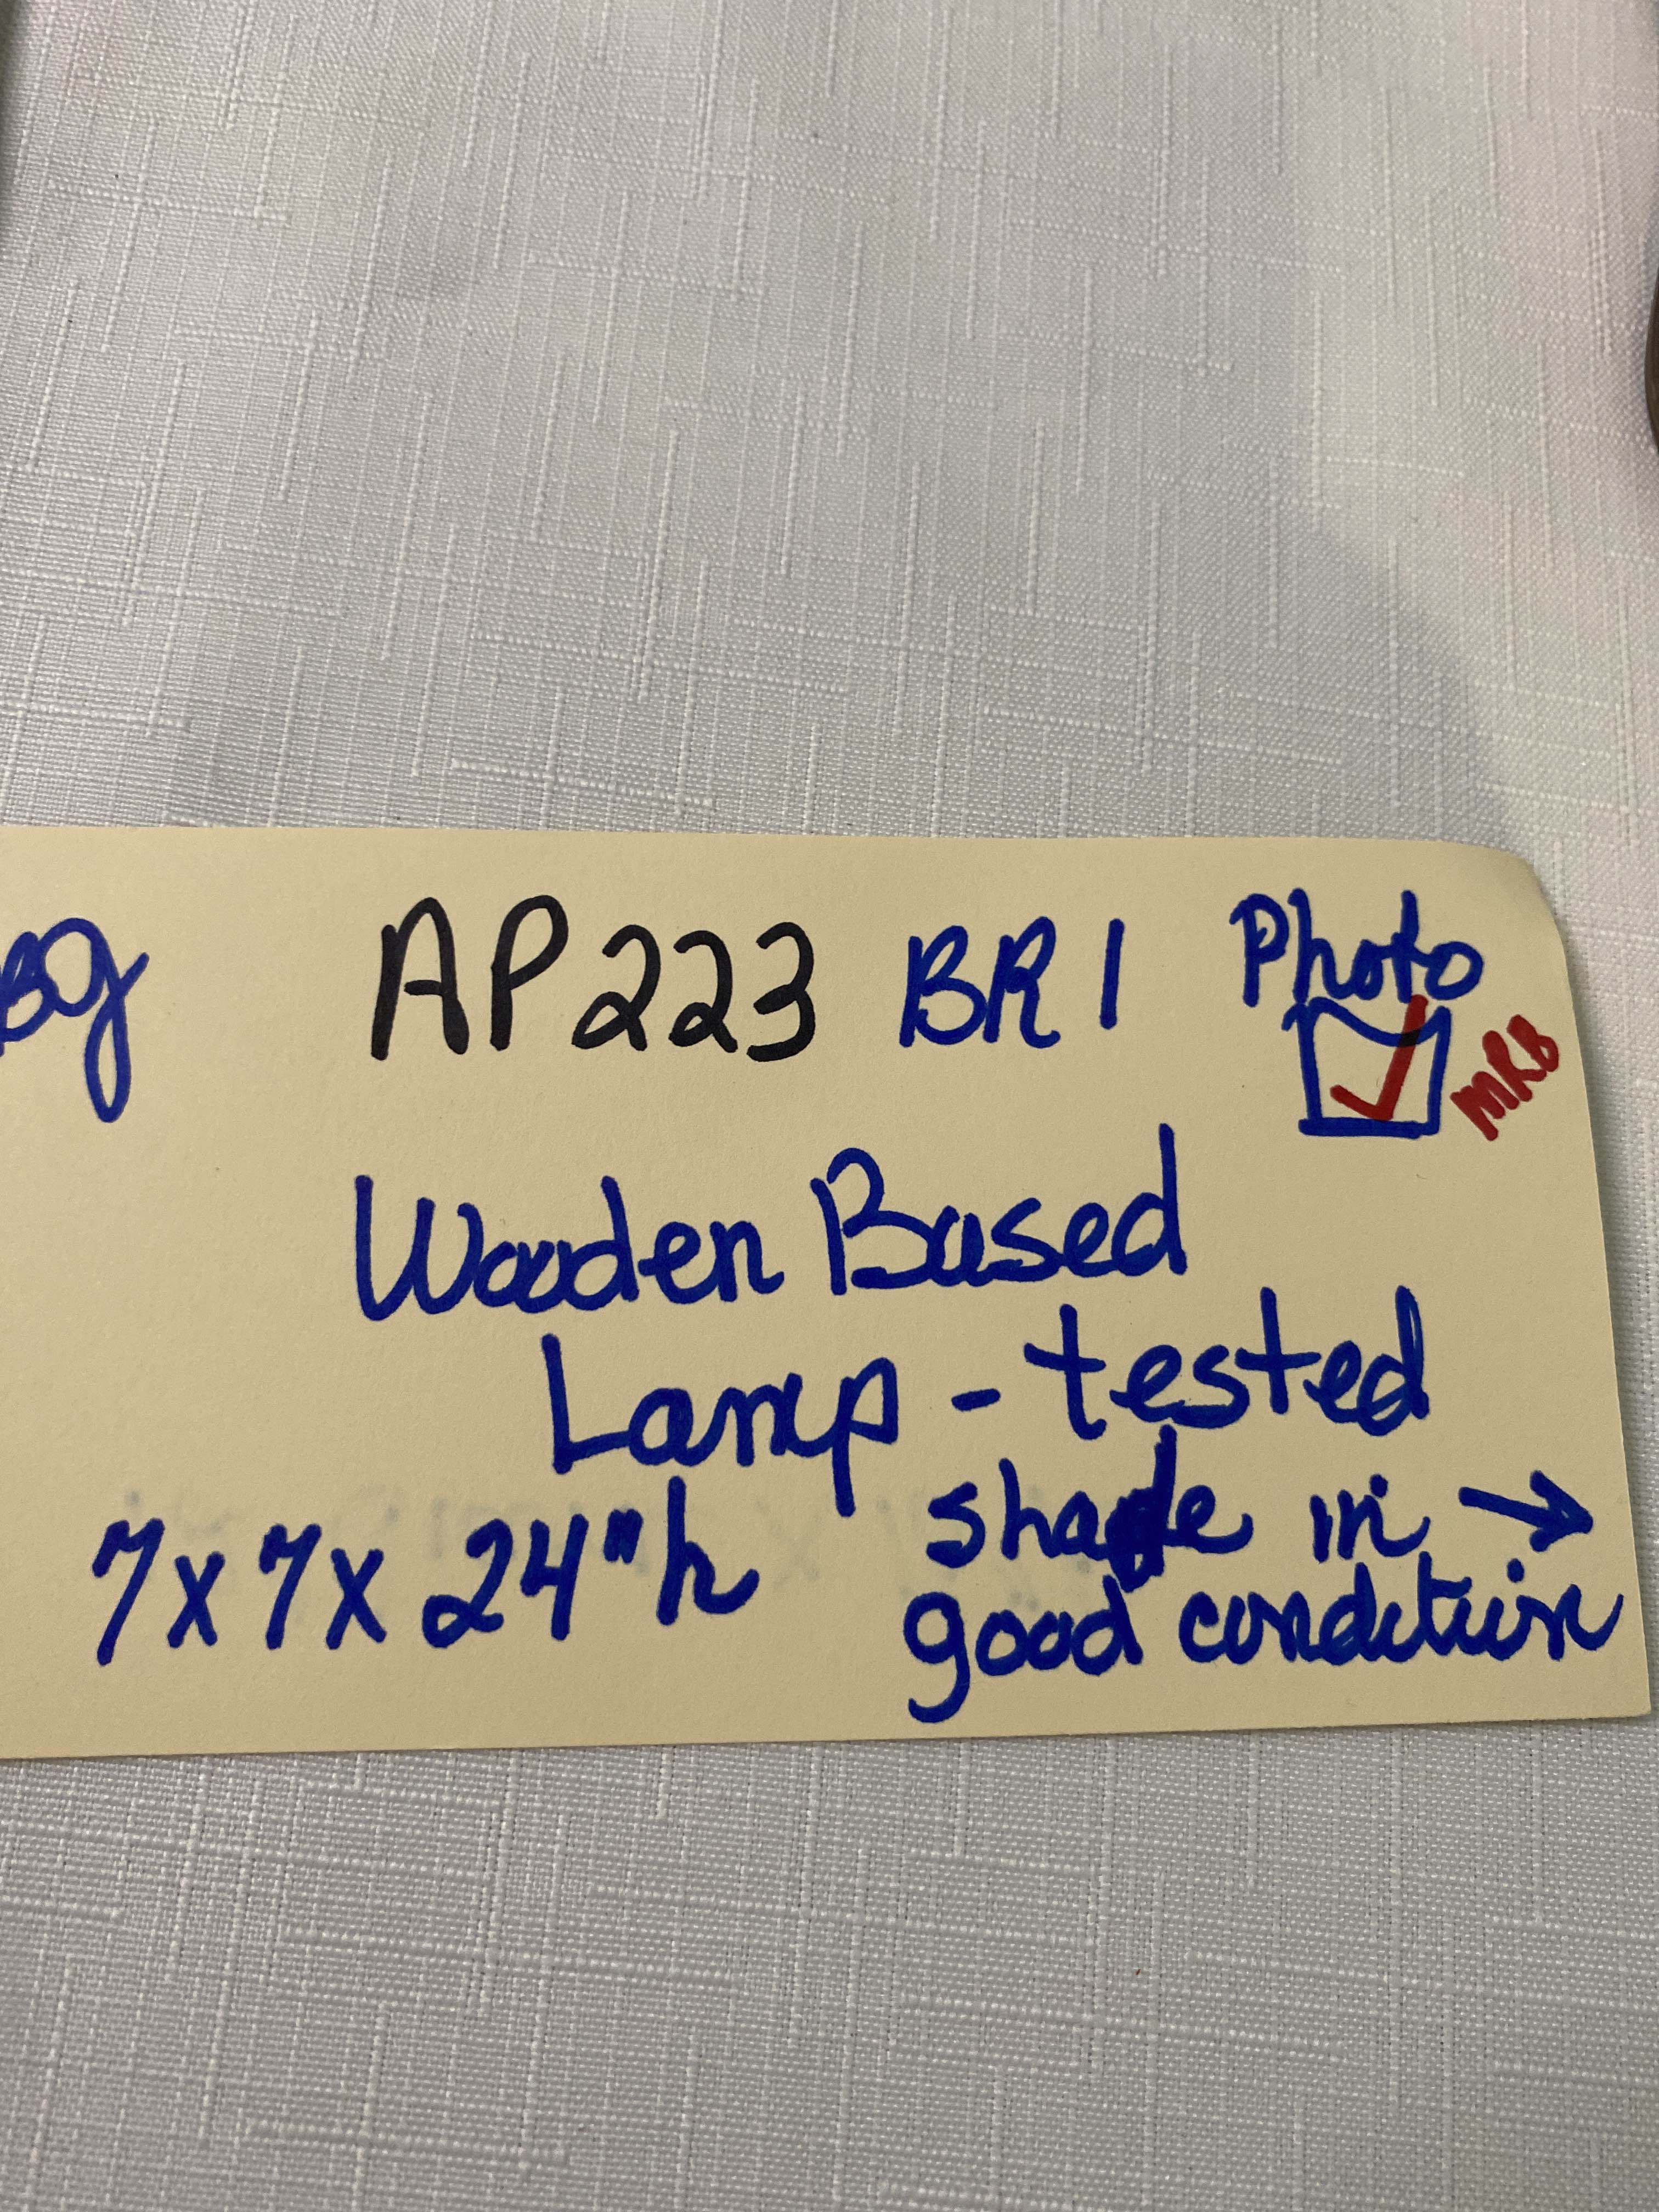 AP223 BR1 Photo
MRB
Wooden Based
Lamp - tested
7x7x24"h shade in →
good condition